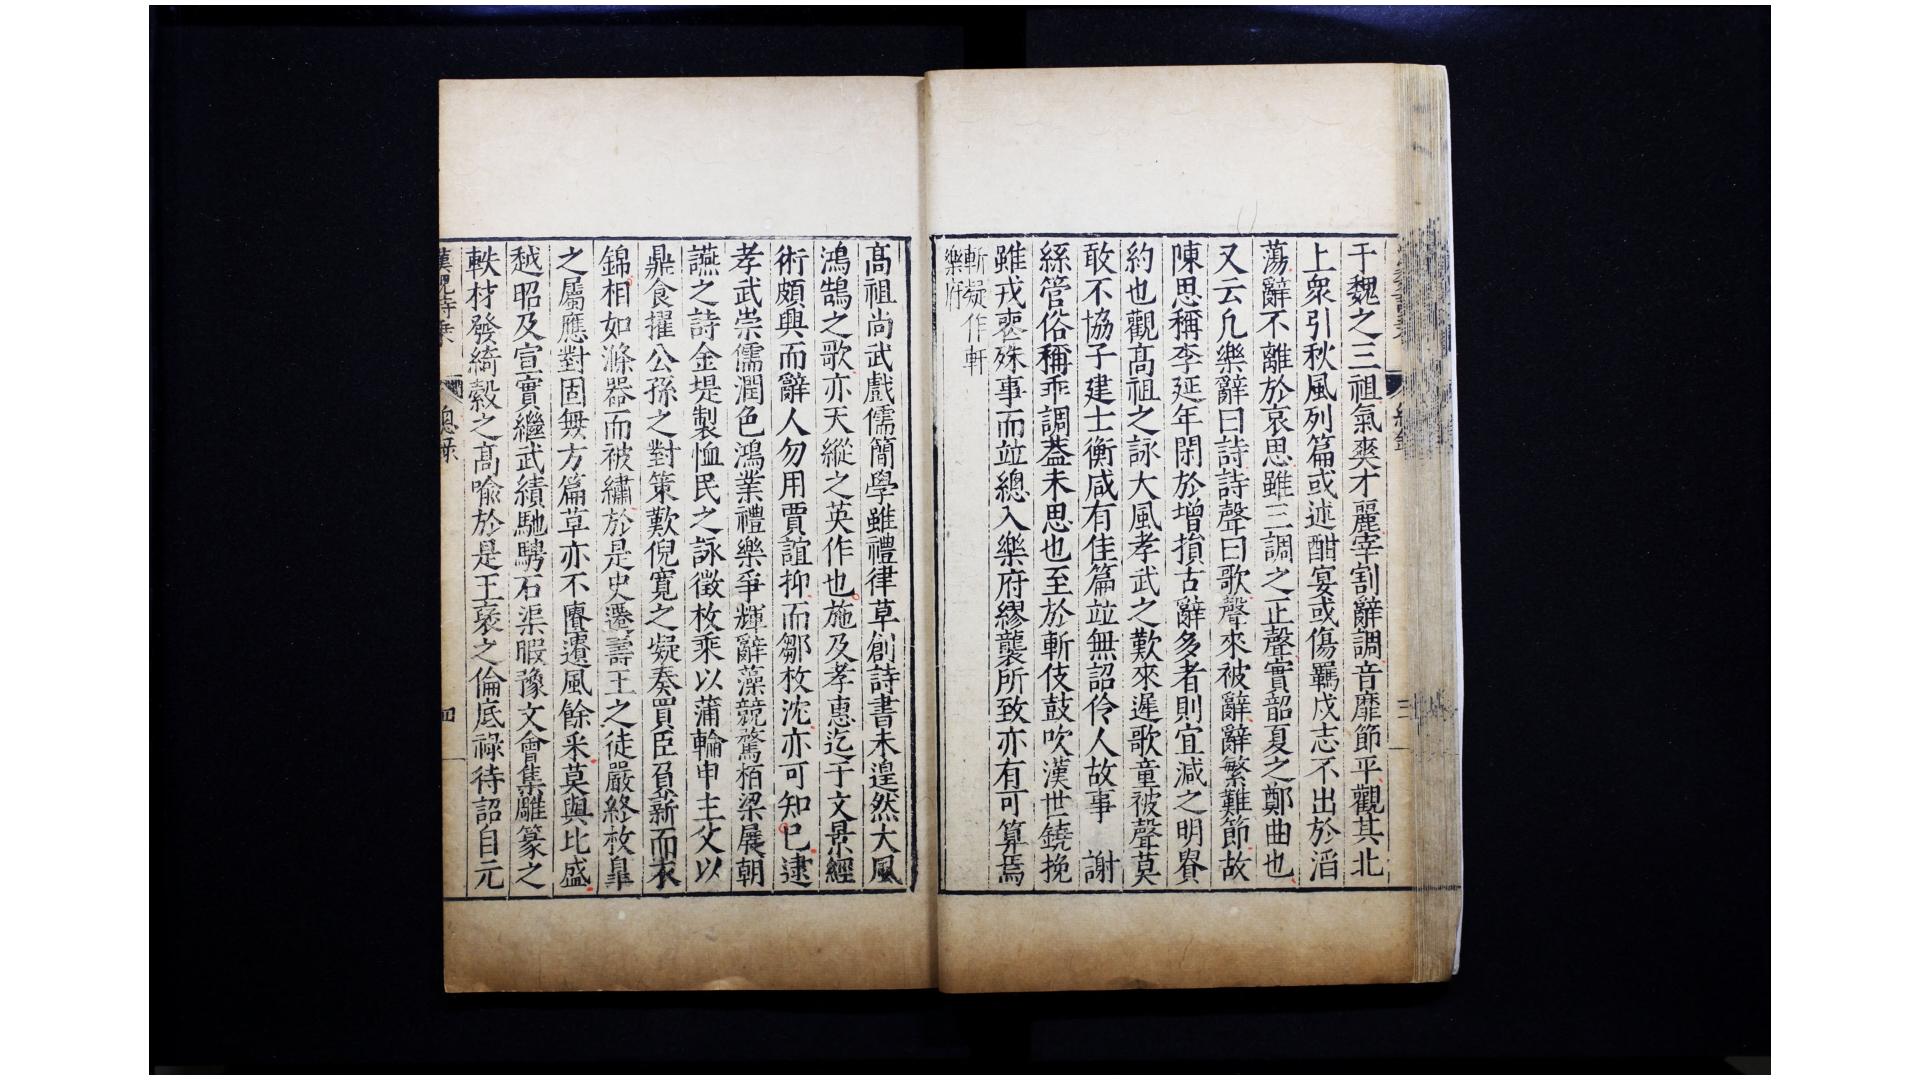 于魏之三祖氣爽才麗宰割辭調音靡節平觀其北
上衆引秋風列篇或述酣宴或傷羈戍志不出於滔
蕩辭不離於哀思雖三調之正聲實韶夏之鄭曲也
又云凡樂辭曰詩詩聲曰歌聲來被辭辭繁難節故
陳思稱李延年閑於增損古辭多者則宜減之明貴
約也觀高祖之詠大風孝武之歎來遲歌童被聲莫
敢不協子建士衡咸有佳篇竝無詔伶人故事 謝
絲管俗稱乖調蓋未思也至於斬伎鼓吹漢世鐃挽
雖戎喪殊事而竝總入樂府繆襲所致亦有可算焉
斬疑作軒
樂府
高祖尚武戲儒簡學雖禮律草創詩書未遑然大風
鴻鵠之歌亦天縱之英作也施及孝惠迄于文景經
術頗興而辭人勿用賈誼抑而鄒枚沈亦可知已逮
孝武崇儒潤色鴻業禮樂爭輝辭藻競騖柏梁展朝
讌之詩金堤製恤民之詠徵枚乘以蒲輪申主父以
鼎食擢公孫之對策歎倪寬之凝奏買臣負薪而衣
錦相如滌器而被繡於是史遷壽王之徒嚴終枚皐
之屬應對固無方篇章亦不匱遺風餘采莫與比盛
越昭及宣實繼武績馳騁石渠暇豫文會集雕篆之
軼材發綺縠之高喻於是王褒之倫底祿待詔自元
漢魏詩乘 總錄 四